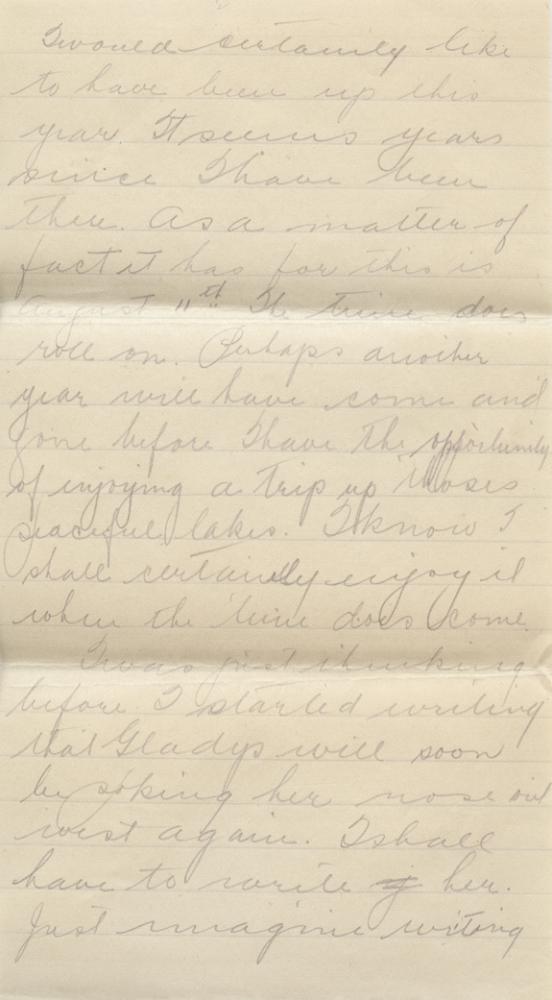 I would certainly like
to have been up this
year. It seems years
since I have been
there. As a matter of
fact it has for this is
August 11th. The time does
roll on. Perhaps another
year will have come and
gone before I have the opportunity
of enjoying a trip up those
peaceful lakes. I know I
shall certainly enjoy it
when the time does come.
I was just thinking
before I started writing
that Gladys will soon
be poking her nose out
west again. I shall
have to write her.
Just imagine writing